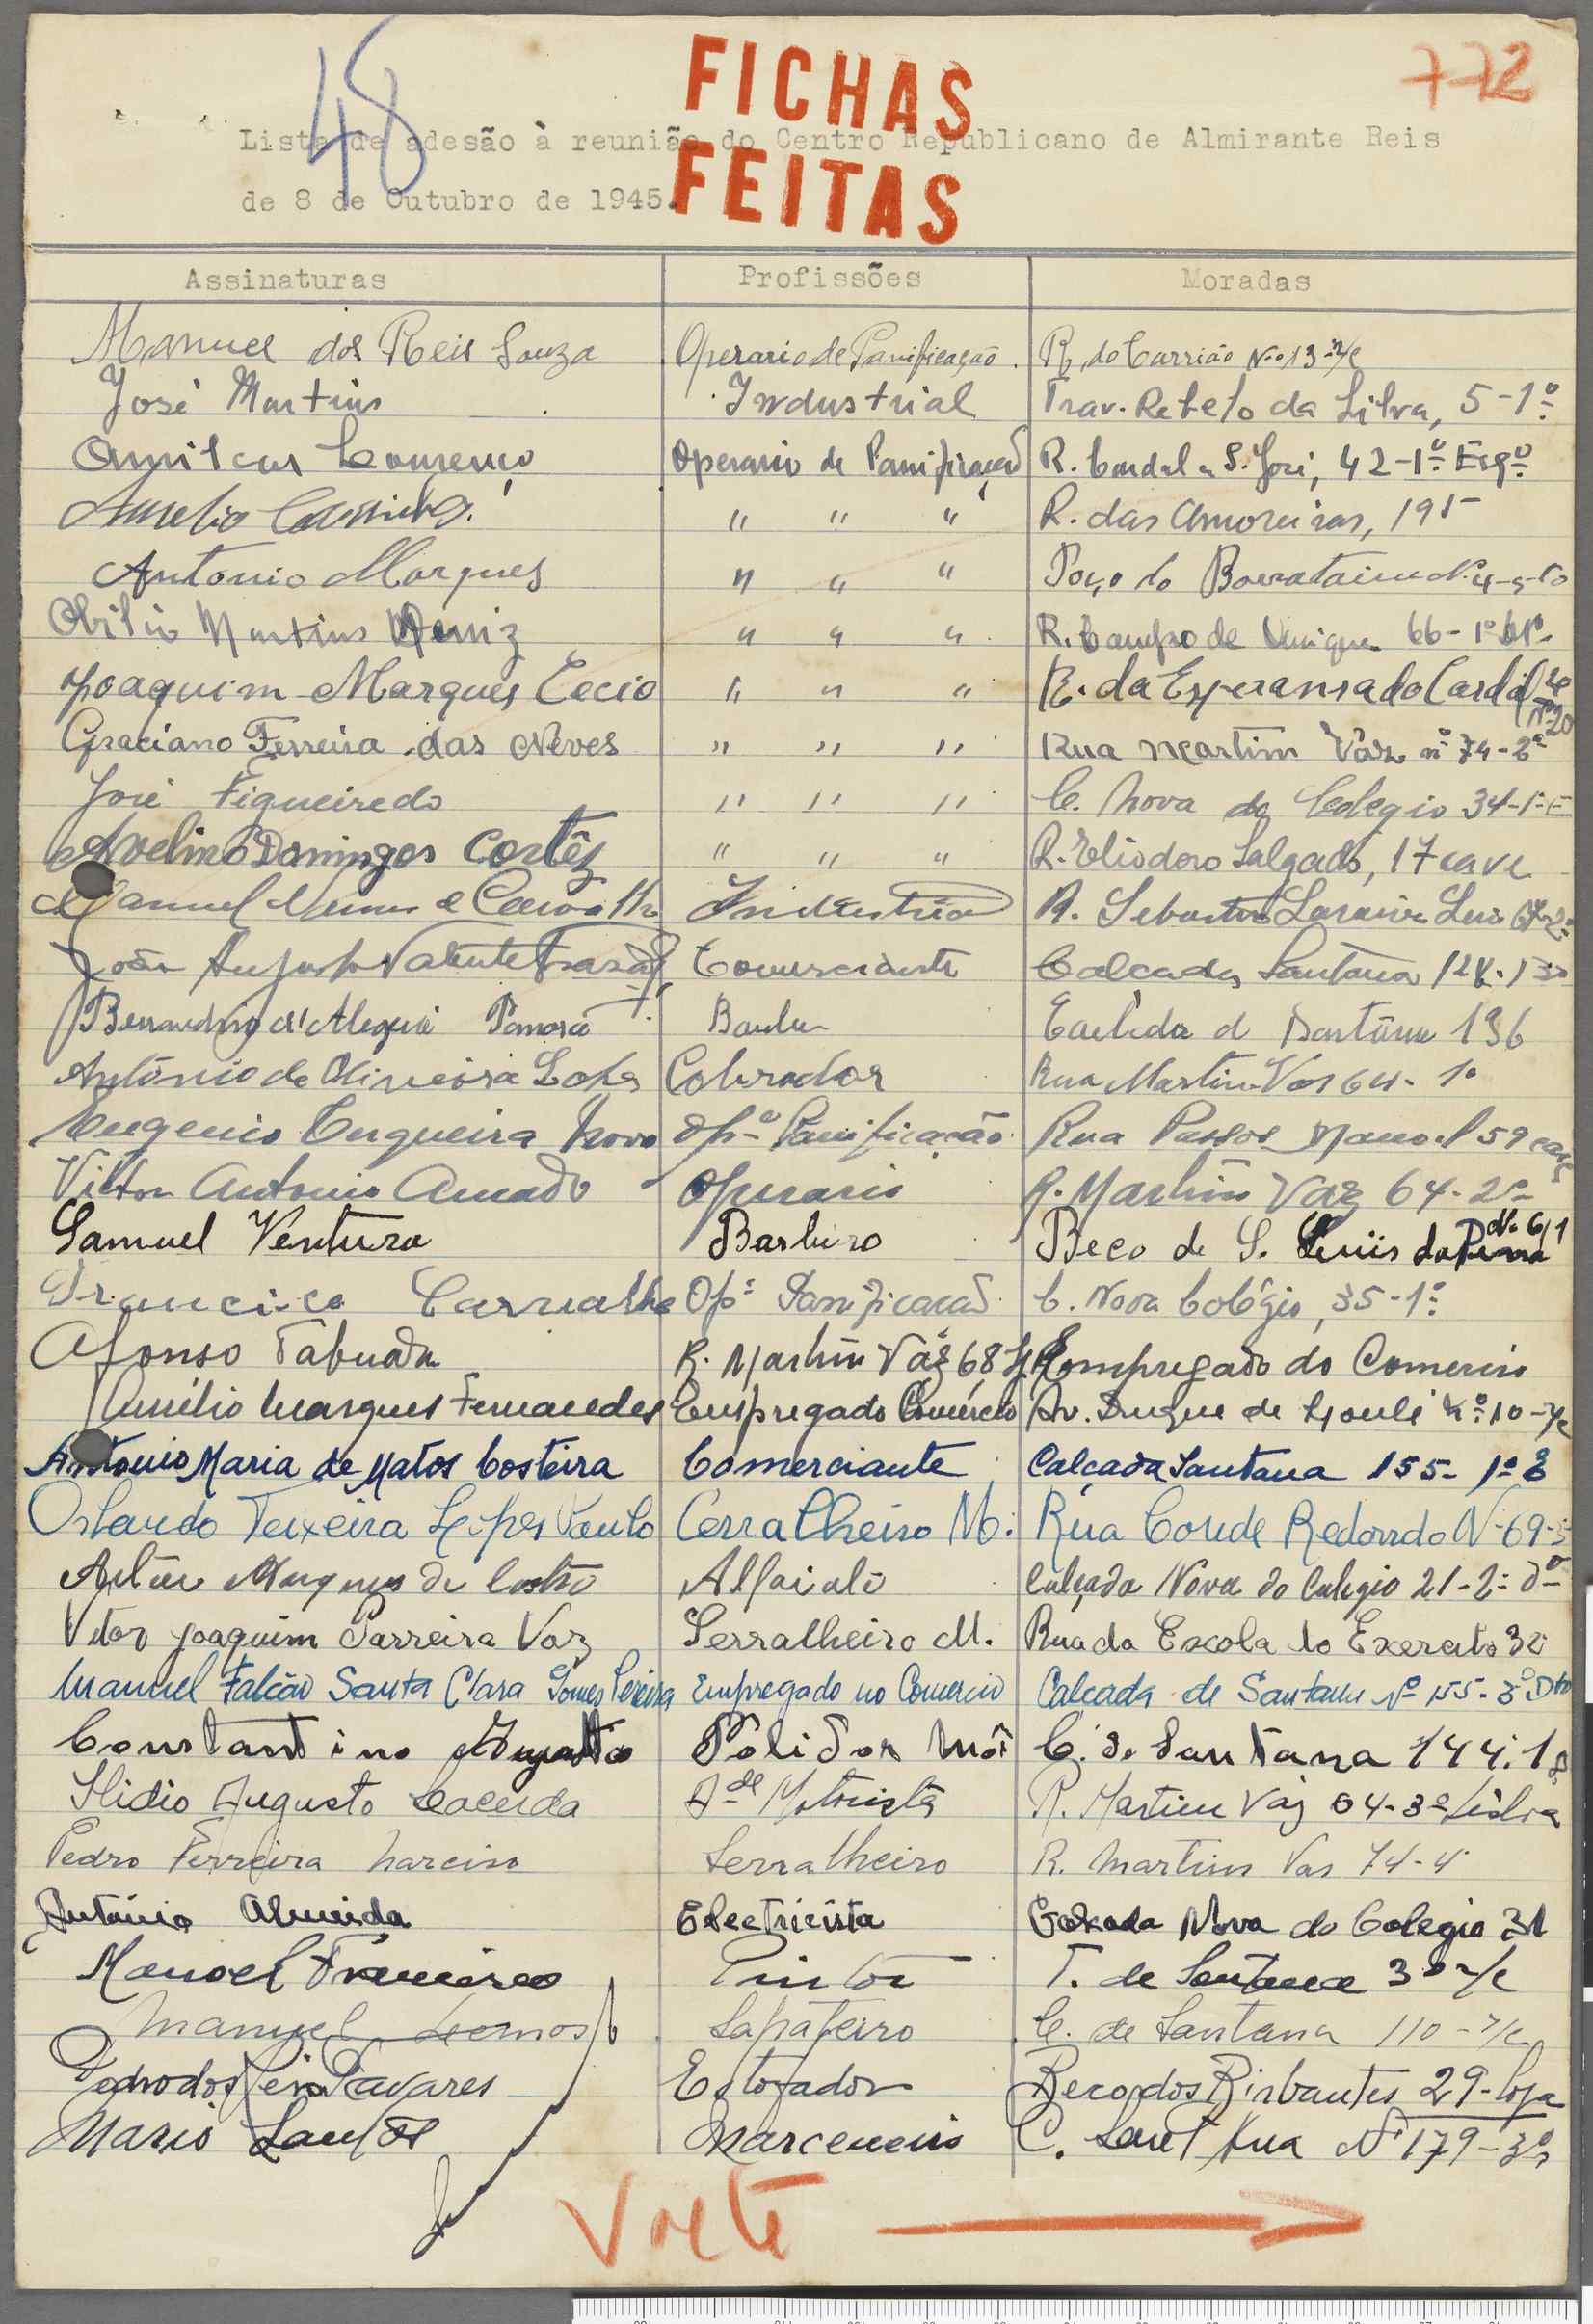 48
FICHAS
772
Lista de adesão à reunião do Centro Republicano de Almirante Reis
FEITAS
de 8 de Outubro de 1945.
Assinaturas Profissões Moradas
Manuel dos Reis Souza Operario de Panificação R. do Carrião N.º 13 r/c
José Martins Industrial Trav. Rebelo da Silva, 5-1º
Amilcar Lourenço Operario de Panificação R. Cardal a S. José, 42-1º Esqº
Aurelio " " " R. das Amoreiras, 195
Antonio Marques " " " Poço do Borratem Nº 4-5-
Abilio Martins Deniz " " " R. Campo de Ourique 66-1º
Joaquim Marques Cecio " " " R. da Esperansa do Cardal Nº 20
Graciano Ferreira das Neves " " " Rua Martim Váz nº 74-2º
José Figueiredo " " " C. Nova do Colegio 34-1º E
Avelino Domingos Cortêz " " " R. Eliodoro Salgado, 17 cave
Manuel Nunes e Carvalho Industria R. Sebastião Saraiva Lima
João Augusto Valente Comerciante Calçada Santana
Bernardino d'Alegria Calçada d Santana 136
António de Oliveira Lopes Cobrador Rua Martim Vas 64-1º
Eugenio Cerqueira Novo Opº Panificação Rua Passos Manoel 59 cave
Vitor Antonio Amado Operario R. Martim Vaz 64-2º
Samuel Ventura Barbeiro Beco de S. Luiis da Pena Nº 6/1
Francisco Carvalho Opº Panificação C. Nova Colégio, 35-1º
Afonso Tabuada R. Martim Váz 68 Empregado do Comercio
Aurélio Marques Fernandes Empregado Comércio Av. Duque de Loulé Nº 10-r/c
Antonio Maria de Matos Costeira Comerciante Calçada Santana 155-1º E
Orlando Teixeira Lopes Paulo Cerralheiro M. Rua Conde Redondo Nº 69-5º
Artur Marques de Castro Alfaiate Calçada Nova do Colegio 21-2º dº
Vitor Joaquim Parreira Vaz Serralheiro M. Rua da Escola do Exercito 32
Manuel Falcão Santa Clara Gomes Pereira Empregado no Comercio Calçada de Santana Nº 155-3º Dto
Constantino Augusto Polidor C. de Santana 144.1º
Ilidio Augusto Lacerda Ade Motorista R. Martim Váz 64-3º Lisboa
Pedro Ferreira Narciso Serralheiro R. Martins Vas 74-4º
António Almeida Electricista Calçada Nova do Colegio 31
Manoel Francisco Pintor T. de Santana 3 r/c
Manuel Lemos Sapateiro C. de Santana 110-r/c
Pedro dos Reis Tavares Estofador Beco dos Birbantes 29-loja
Mario Santos Marceneiro C. Sant'Ana Nº 179-3º
Volte →